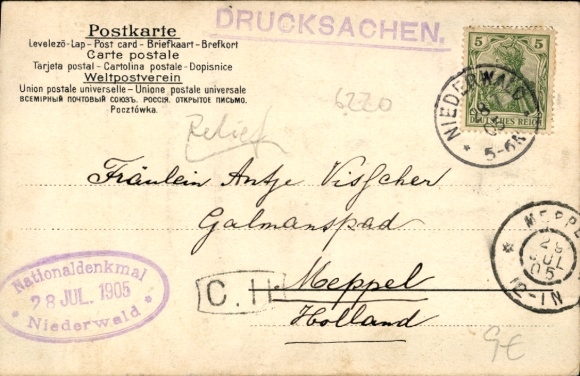 DRUCKSACHEN.
Postkarte
Levelező-Lap - Post card - Briefkaart - Brefkort
Carte postale
Tarjeta postal - Cartolina postale - Dopisnice
Weltpostverein
Union postale universelle - Unione postale universale
ВСЕМІРНЫЙ ПОЧТОВЫЙ СОЮЗЪ. РОССІЯ. ОТКРЫТОЕ ПИСЬМО.
Pocztówka.
5 5
DEUTSCHES REICH
NIEDERWALD
28
05
5-6N
6220
Relief
Fräulein Antje Visscher
Galmanspad
Meppel
Holland
C.H
MEPPE
29
JUL
05
12-1N
Nationaldenkmal
28 JUL. 1905
* Niederwald *
9€